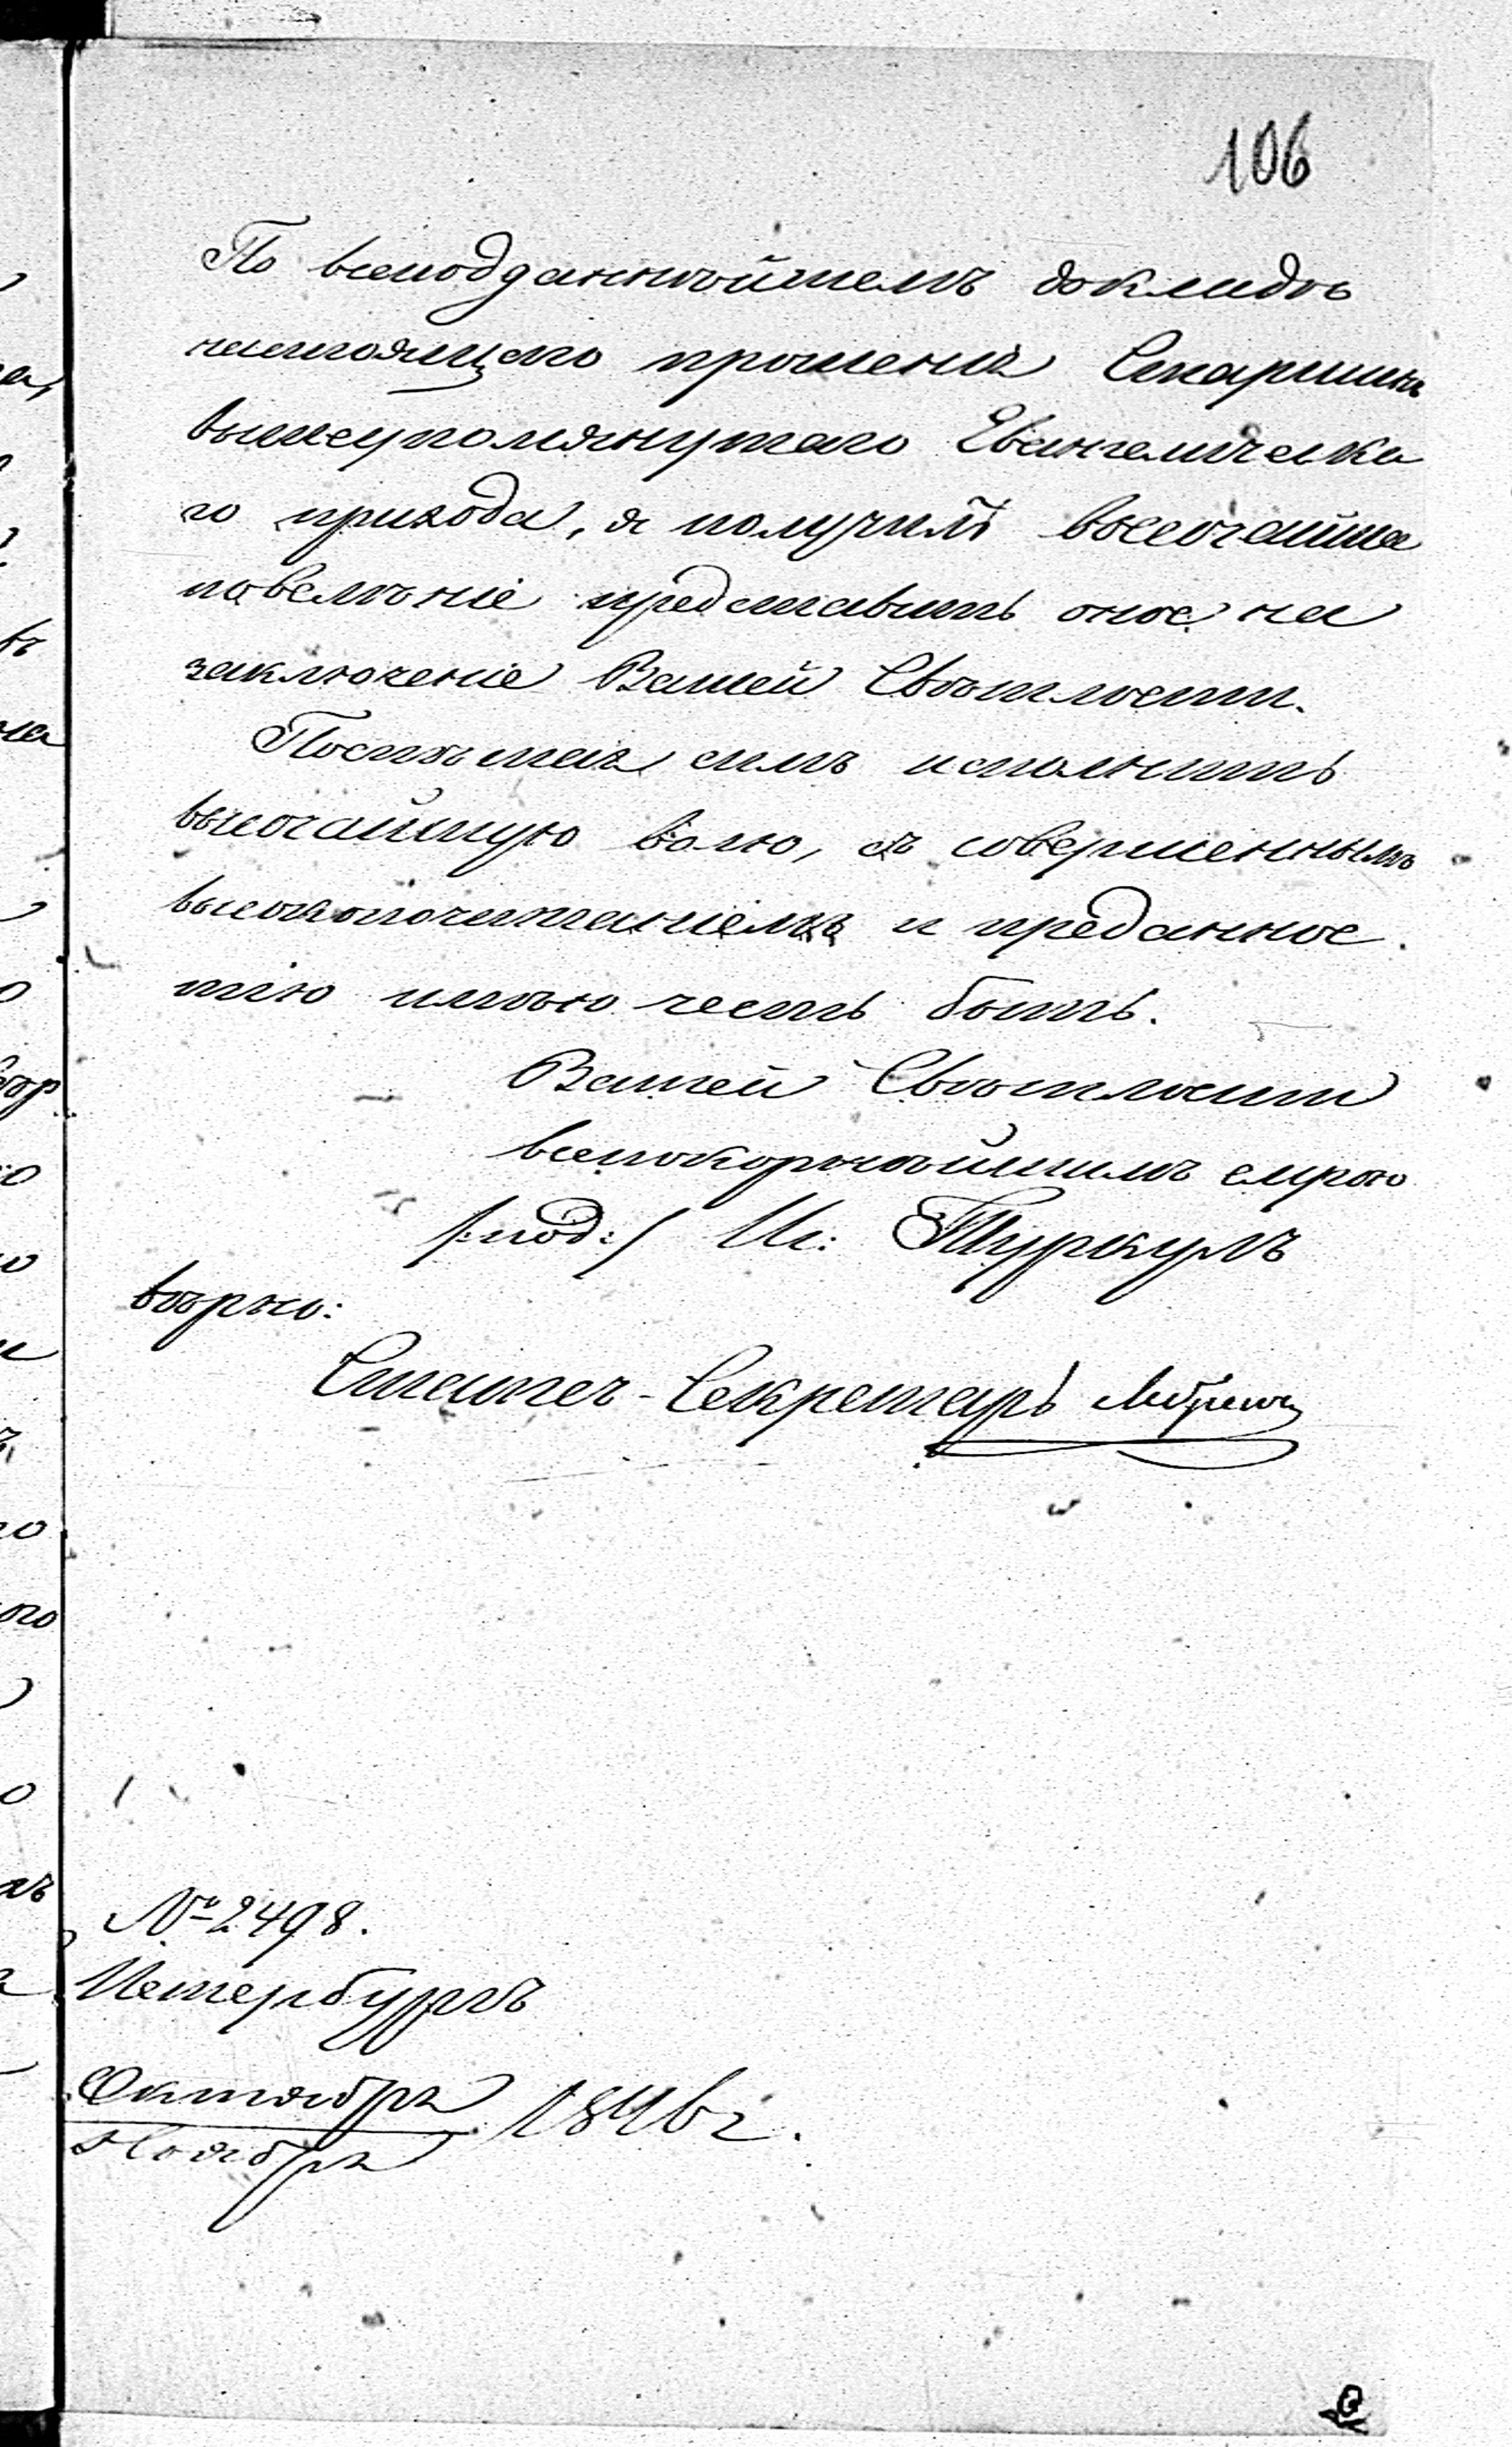 106
По всеподданнѣйшемъ докладѣ
настоящаго прошенія Старшинъ
вышеупомянутаго Евангелическа
го прихода, я получилъ высочайшее
повелѣніе представить оное на
заключеніе Вашей Свѣтлости.
Поспѣшая симъ исполнить
высочайшую волю, съ совершеннымъ
высокопочитаніемъ и преданнос
тію имѣю честь быть.
Вашей Свѣтлости
всепокорнѣйшимъ слугою
/:под:/ И: Туркулъ
вѣрно:
Статсъ-Секретарь
№ 2498.
Петербургъ
Октября
Ноября 1846 г.